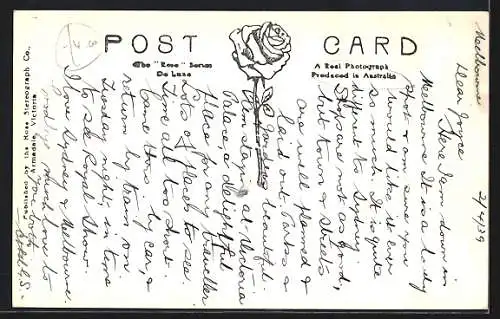 POST CARD
The "Rose" Series
De Luxe
A Real Photograph
Produced in Australia
Published by the Rose Stereograph Co.,
Armadale, Victoria
Melbourne
2/4/39
Dear Joyce
Here I am down in
Melbourne. It is a lovely
spot & am sure you
would like it ever
so much. It is quite
different to Sydney.
Shops are not as good,
but town & streets
are well planned &
laid out. Parks &
Gardens beautiful
Am staying at Victoria
Palace, a delightful
place for any traveller
Lots of places to see.
Time all too short.
Came this by car, &
return by tram on
Tuesday night, in time
to see Royal Show.
I give Sydney & Melbourne
much love to
you both